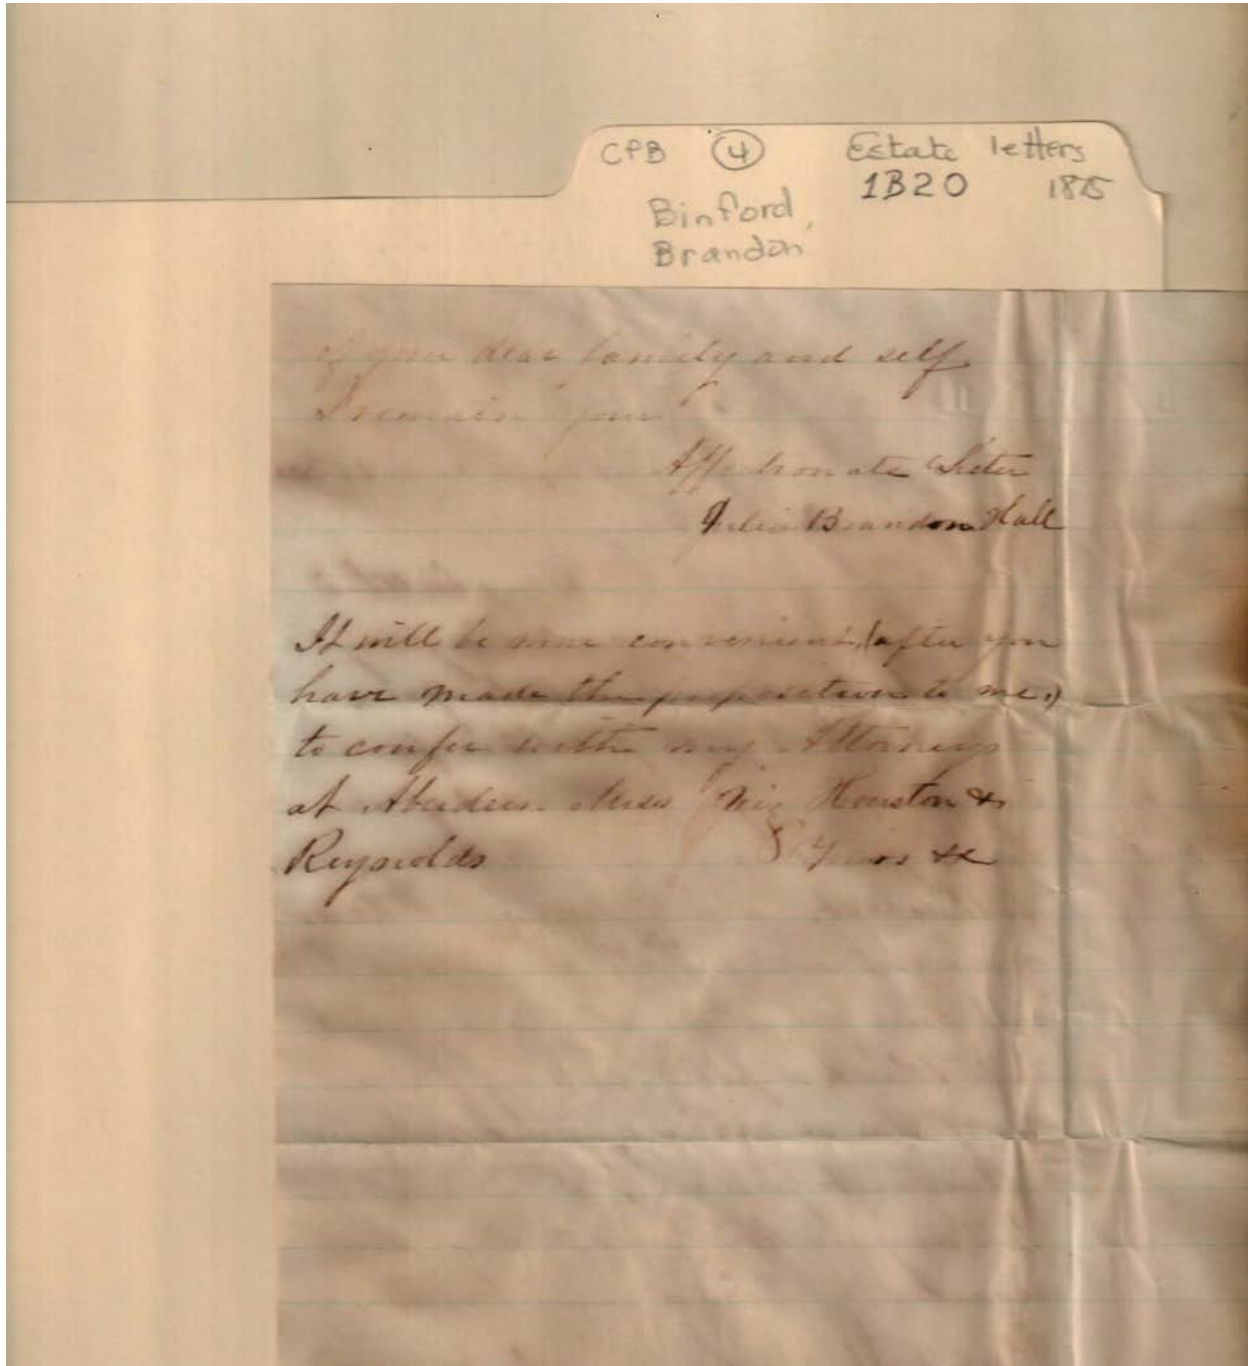 CPB 4 Estate letters
1B20 1875
Binford,
Brandon
of your dear family and self
I remain your
Affectionate Sister
Julia Brandon Hall
It will be more convenient, (after you
have made the proposition to me,)
to confer with my Attorneys
at Aberdeen Miss Viz Houston &
Reynolds Yours &c